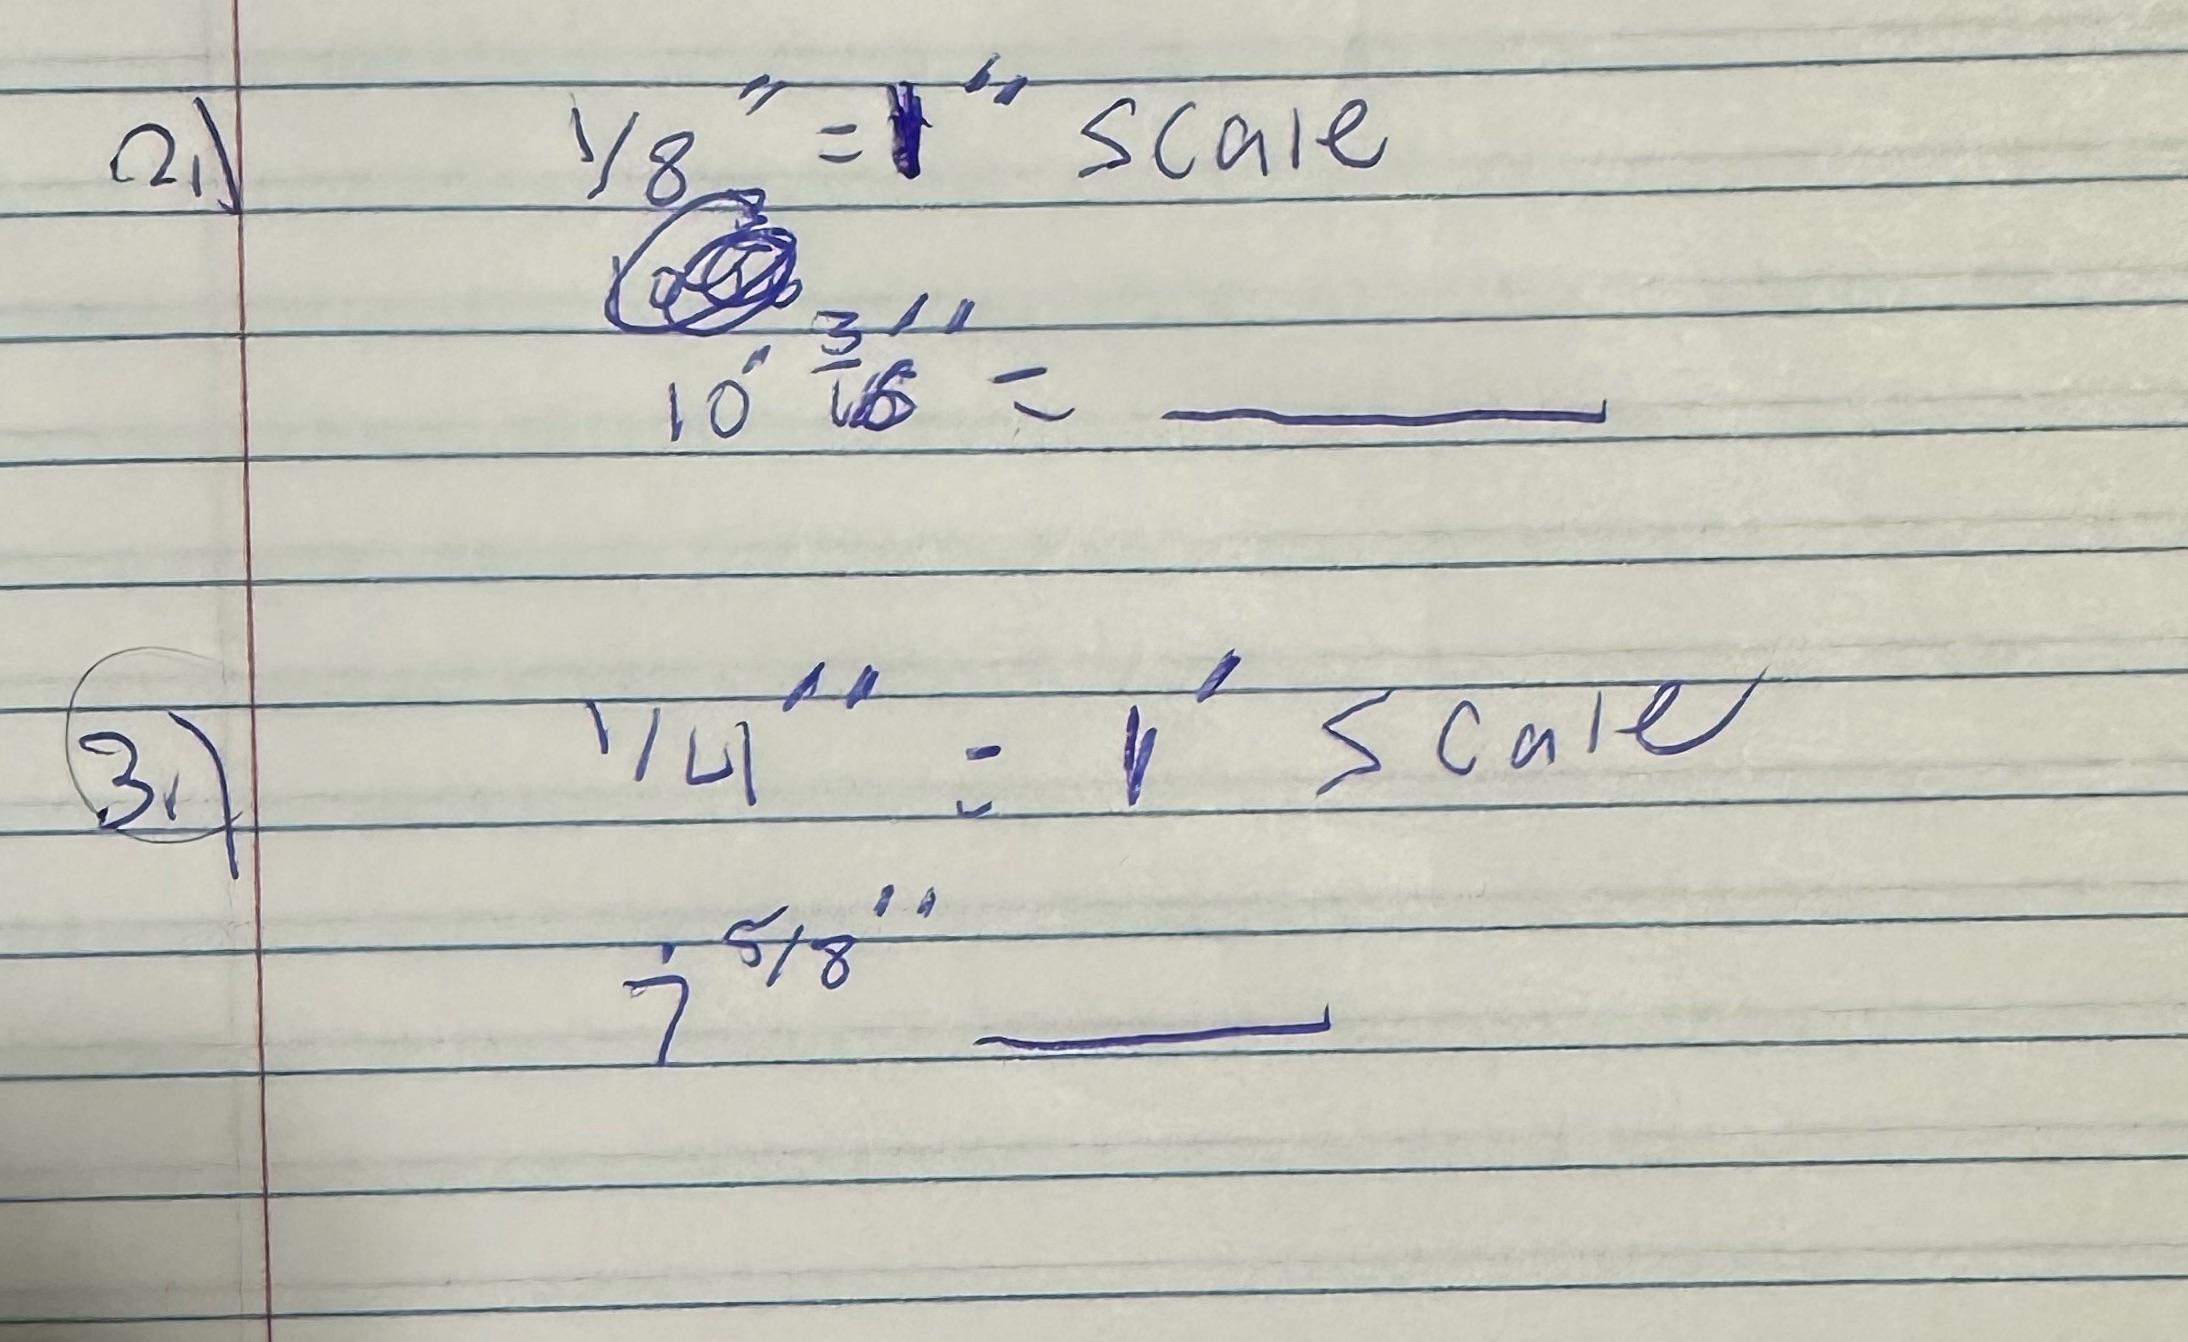 2.) 1/8" = 1" scale
10' 3/16" =
3.) 1/4" = 1' scale
7' 5/8"